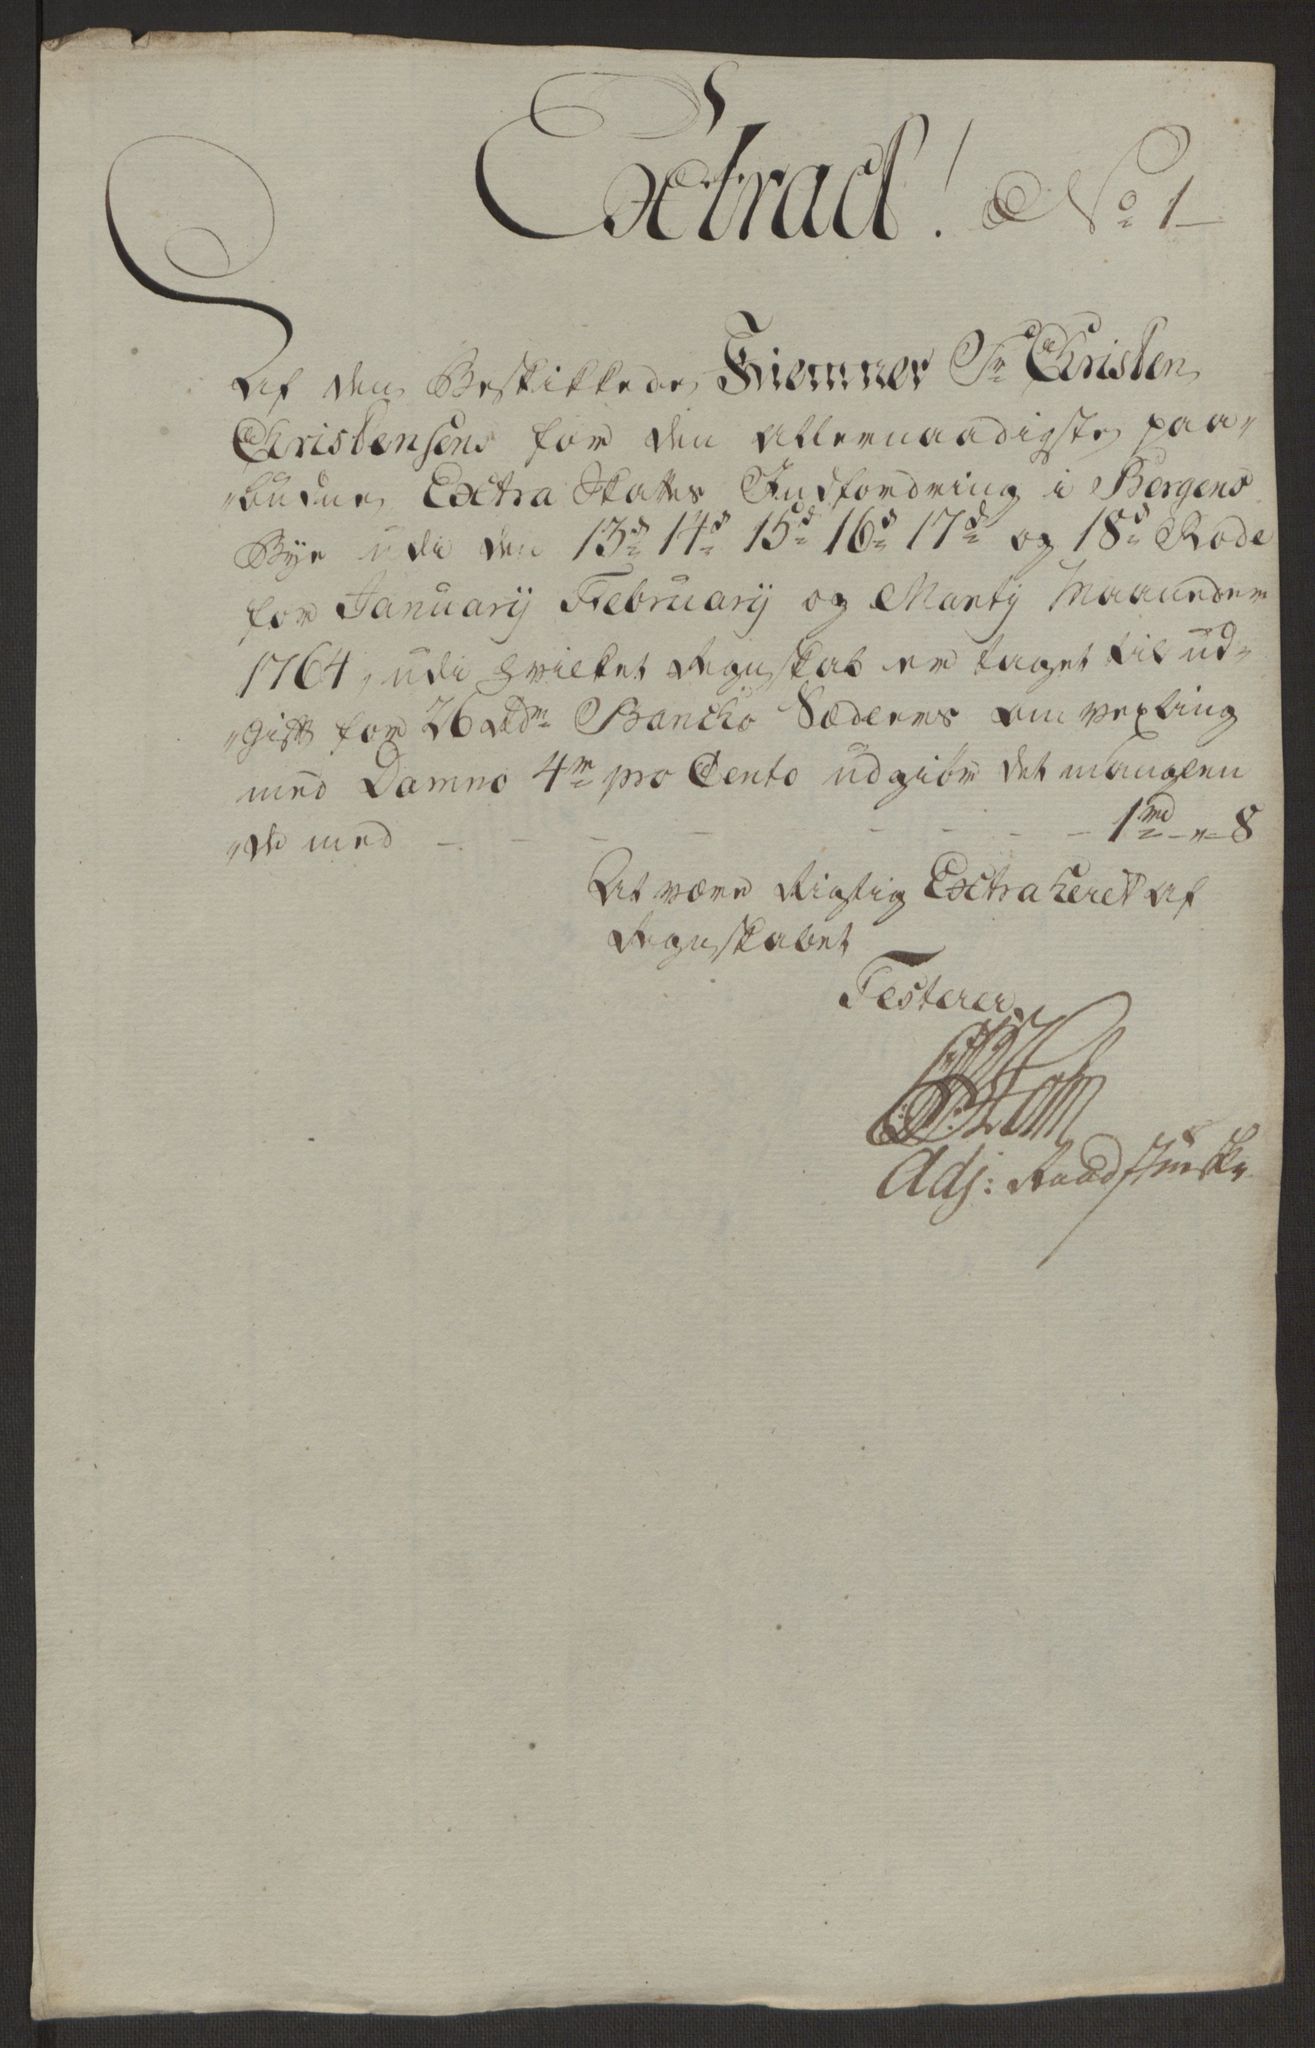 Extract! No 1
Af den Beskikkede Kiemner Sr Christen
Christensens for den allernaadigste paa-
budne Extra Skattes Indfordring i Bergens
Bye udi den 13de 14de 15de 16de 17de og 18de Rode
for Januarij Februarij og Martij Maaneder
1764, udi hvilket Regnskab er taget til ud-
gift for 26 Rdr Bancko Sedlers omvexling
med Damno 4m pro Cento udgiør det manglen
de med - - - - - - 1md - " - 8
At være Rigtig Extraheret af
Regnskabet
Testerer
Adj: Raadstueskr